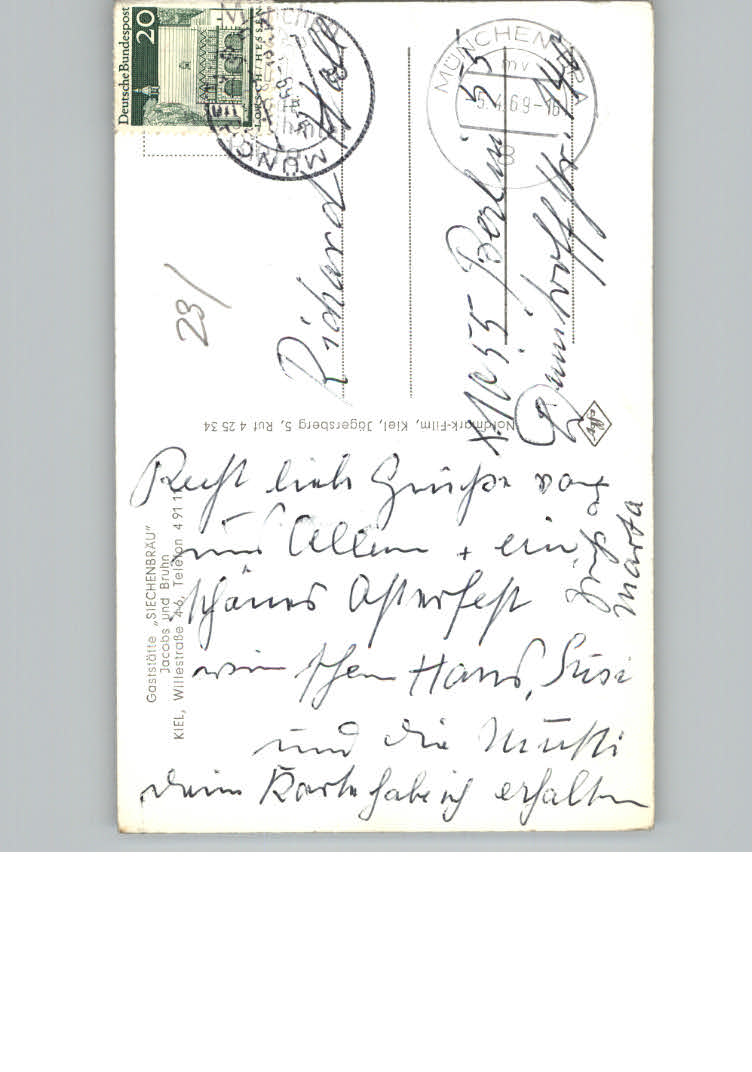 Deutsche Bundespost
20
LORSCH/HESSEN
MÜNCHEN
5.4.69-16
mv
Richard Holt
X 1055 Berlin 55
Dimitroffstr.
23/
Nordmark-Film, Kiel, Jägersberg 5, Ruf 4 25 34
Gaststätte „SIECHENBRÄU"
Jacobs und Bruhn
KIEL, Willestraße 4-6, Telefon 4 91 11
Recht liebe Grüße von
uns Allen + ein
schönes Osterfest
wünschen Hans, Susi
und die Mutti
deine Karte habe ich erhalten
Gruß
Marta